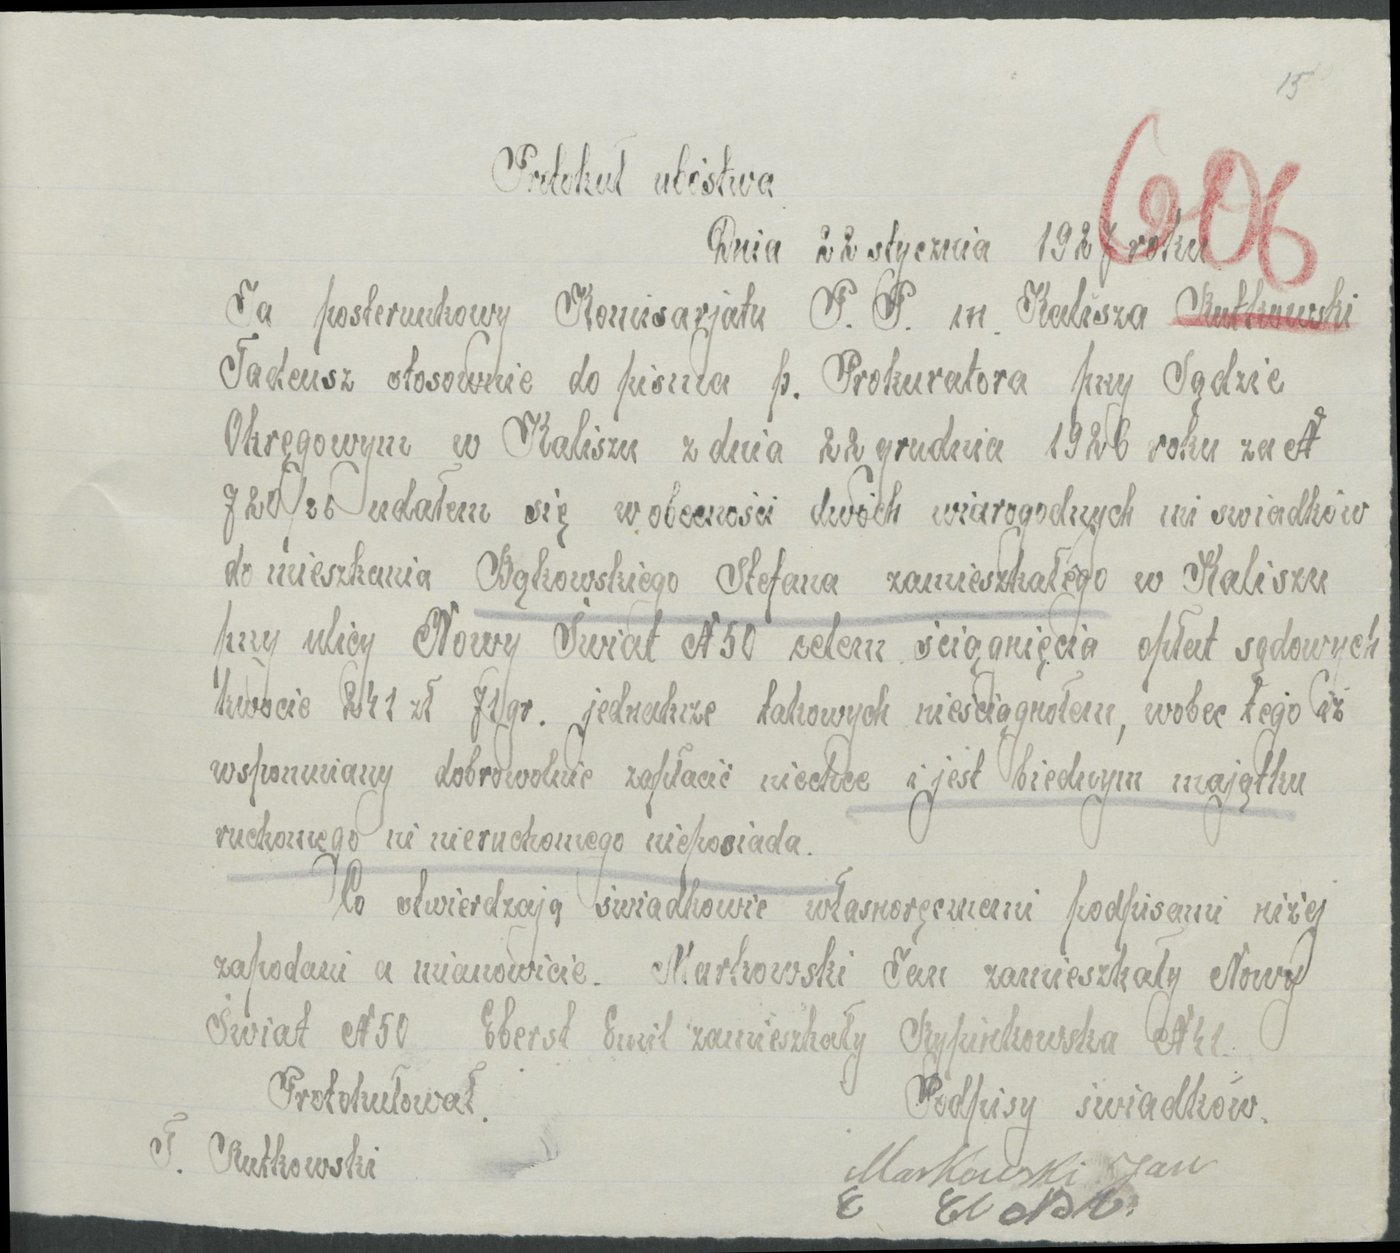 15
606
Protokuł ubóstwa
Dnia 22 stycznia 1927 roku
Ja posterunkowy Komisarjatu P. P. m. Kalisza Rutkowski
Tadeusz stosownie do pisma p. Prokuratora przy Sądzie
Okręgowym w Kaliszu z dnia 22 grudnia 1926 roku za №
720/26 udałem się w obecności dwóch wiarogodnych mi swiadków
do mieszkania Bąkowskiego Stefana zamieszkałego w Kaliszu
przy ulicy Nowy Świat № 50 celem ściągnięcia opłat sądowych
kwocie 241 zł 71 gr. jednakże takowych nieściągnołem, wobec tego iż
wspomniany dobrowolnie zapłacić niechce i jest biednym majątku
ruchomego ni nieruchomego nieposiada.
Co stwierdzają świadkowie własnoręcznemi podpisami niżej
zapodani a mianowicie. Markowski Jan zamieszkały Nowy
Świat № 50 Eberst Emil zamieszkały Rypinkowska № 41.
Protokułował. Podpisy świadków.
T. Rutkowski
Markowski Jan
E